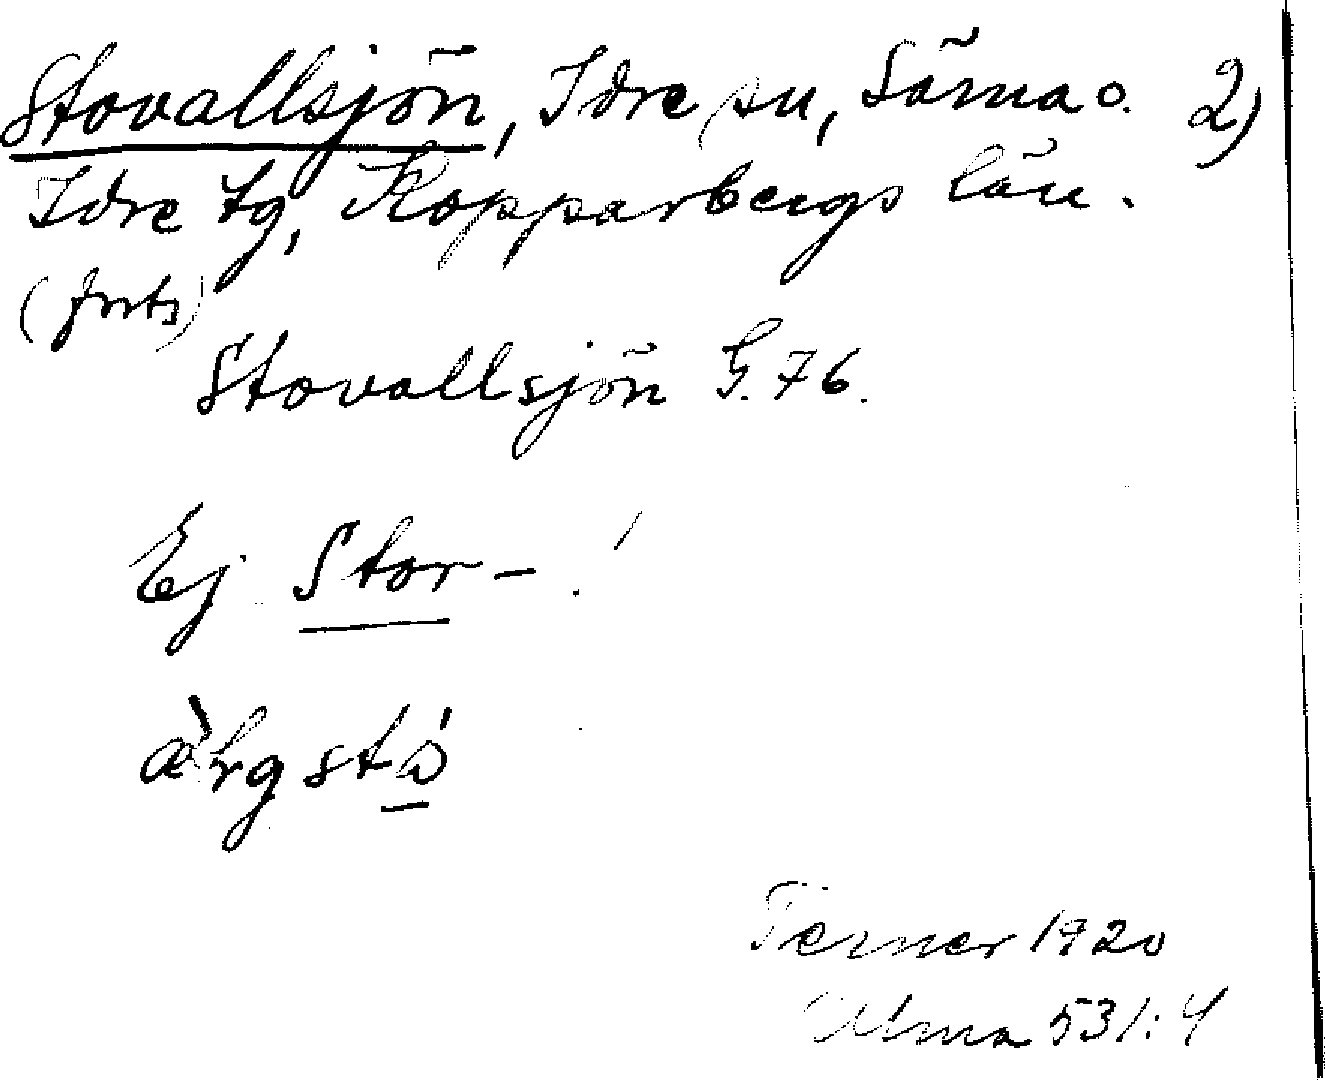 Stovallsjön, Idre sn, Särna o. 2)
Idre tg, Kopparbergs län.
(forts)
Stovallsjön G. 76.
Ej Stor-!
Terner 1920
Ulma 531:4